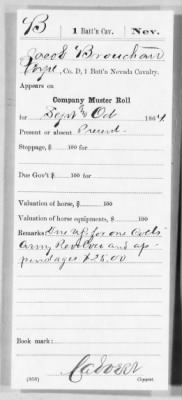 B | 1 Batt'n Cav. | Nev.
Jacob Brouchard
Corpl, Co. D, 1 Batt'n Nevada Cavalry.
Appears on
Company Muster Roll
for Sept & Oct, 1864.
Present or absent Present
Stoppage, $ 100 for
Due Gov't $ 100 for
Valuation of horse, $ 100
Valuation of horse equipments, $ 100
Remarks: Due U.S. for one Colts
Army Revolver and ap-
pendages $25.00
Book mark:
(858) Copyist.